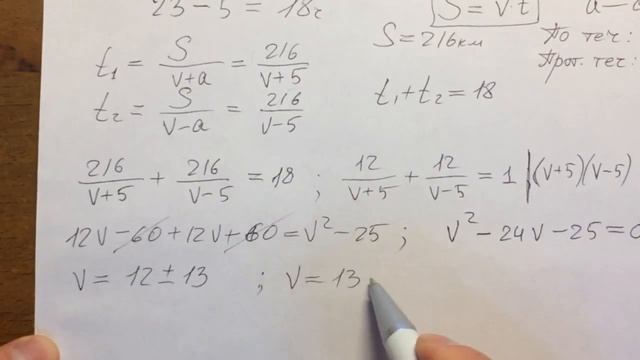 23 − 5 = 18ч
S = v·t
S = 216км
По теч:
Прот. теч:
t₁ = S/(v+a) = 216/(v+5)
t₂ = S/(v−a) = 216/(v−5)
t₁ + t₂ = 18
216/(v+5) + 216/(v−5) = 18 ; 12/(v+5) + 12/(v−5) = 1 |(v+5)(v−5)
12v − 60 + 12v + 60 = v² − 25 ; v² − 24v − 25 = 0
v = 12 ± 13 ; v = 13